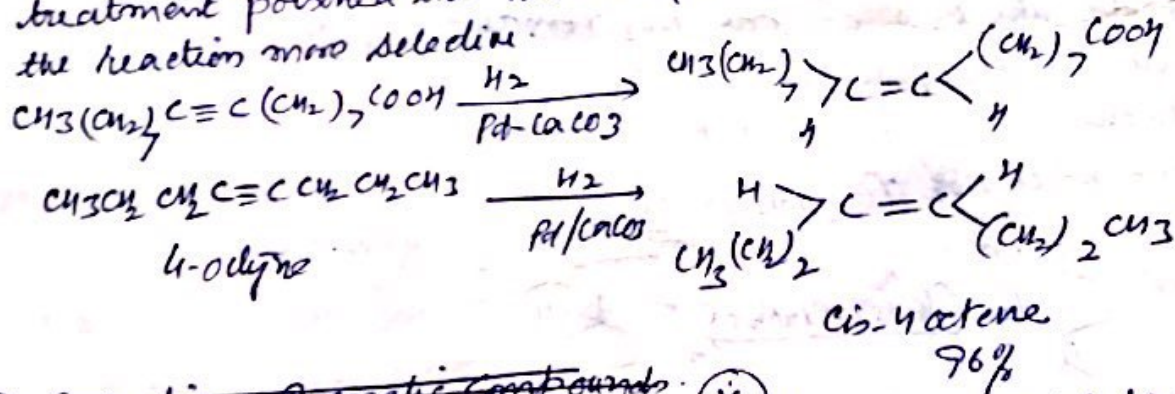 treatment
the reaction more selective.
CH3(CH2)7 C≡C (CH2)7 COOH H2 Pd-CaCO3 CH3(CH2)7 H C=C (CH2)7 COOH H
CH3CH2 CH2C≡CCH2 CH2CH3 H2 Pd/CaCO3 H CH3(CH2)2 C=C H (CH2)2 CH3
4-octyne
Cis-4 octene
96%
compounds.